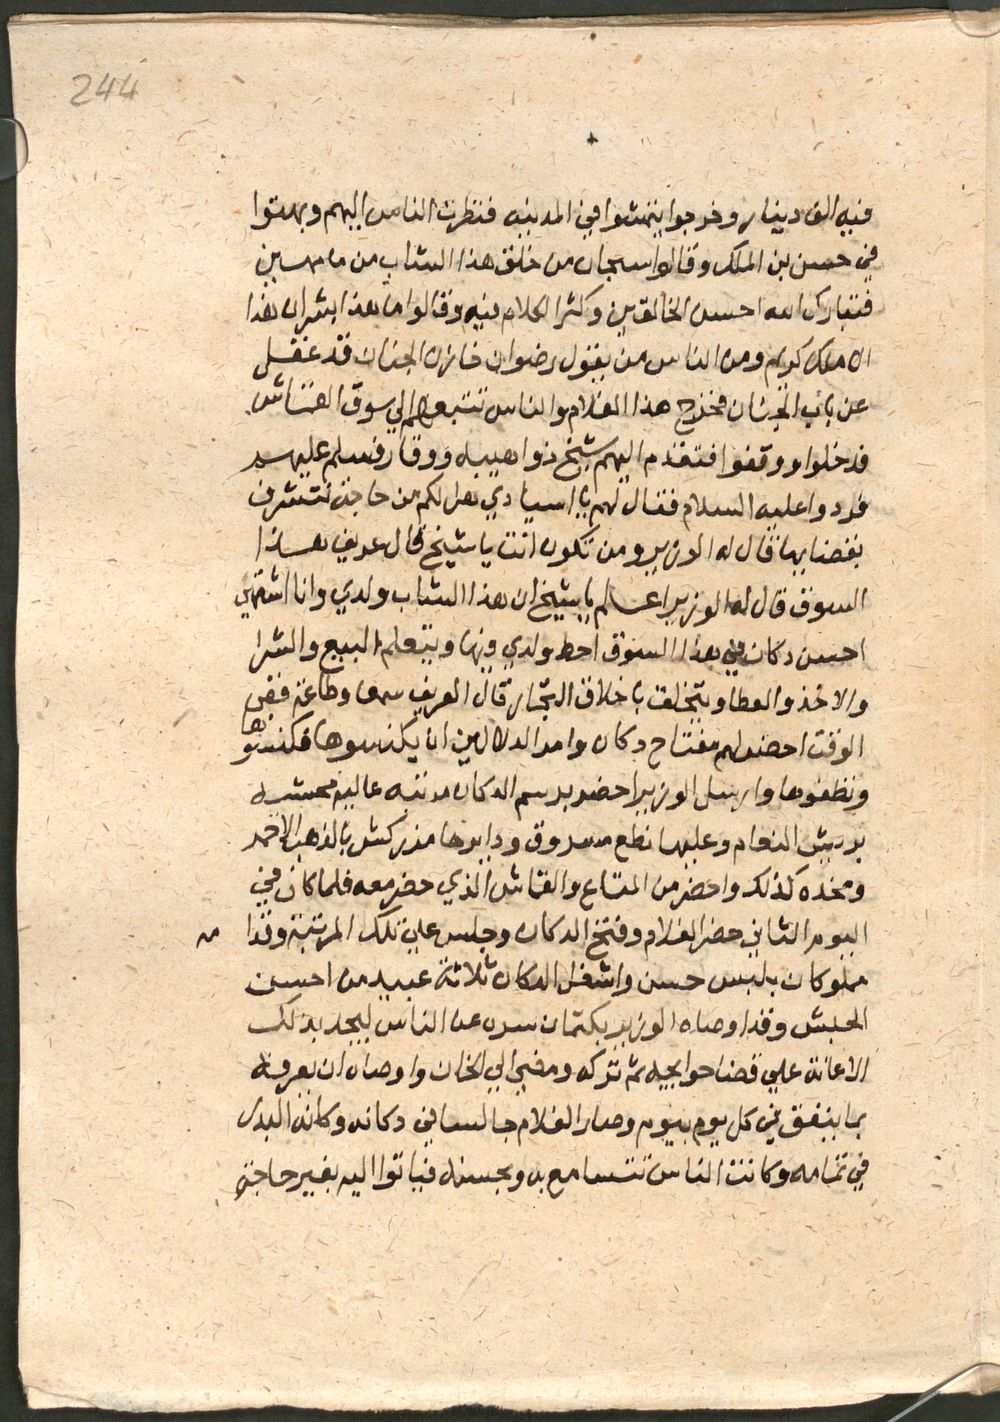 244
فيه الف دينار وخرجوا يتمشوا في المدينه فنظرت الناس اليهم وبهتوا
في حسن بن الملك وقالوا سبحان من خلق هذا الشاب من ما مهين
فتبارك الله احسن الخالقين وكثر الكلام فيه وقالوا ما هذا بشرا ان هذا
الا ملك كريم ومن الناس من يقول رضوان خازن الجنان قد غفل
عن باب الجنان فخرج هذا الغلام والناس تتبعهم الي سوق القماش
فدخلوا ووقفوا فتقدم اليهم شيخ ذوا هيبه ووقار فسلم عليهم
فردوا عليه السلام فقال لهم يا اسيادي هل لكم من حاجة نتشرف
بقضايها قال له الوزير ومن تكون انت يا شيخ قال عريف هذا
السوق قال له الوزير اعلم يا شيخ ان هذا الشاب ولدي وانا اشتهي
احسن دكان في هذا السوق احط ولدي فيها ويتعلم البيع والشرا
والاخذ والعطا ويتخلق باخلاق التجار قال العريف سمعا وطاعة ففي
الوقت احضر لهم مفتاح دكان وامر الدلالين ان يكنسوها فكنسوها
ونظفوها وارسل الوزير احضر برسم الدكان مرتبه عالية محشيه
بريش النعام وعليها نطع مسروق ودايرها مزركش بالذهب الاحمر
ومخده كذلك واحضر من المتاع والقماش الذي حضر معه فلما كان في
اليوم الثاني حضر الغلام وفتح الدكان وجلس علي تلك المرتبة وقدا مه
مملوكان بلبس حسن واشغل الدكان ثلاثة عبيد من احسن
الحبش وقد اوصاه الوزير بكتمان سره عن الناس ليجد بذلك
الاعانة علي قضا حوايجه ثم تركه ومضي الي الخان واوصاه ان يعرفه
بما ينفق في كل يوم بيوم وصار الغلام جالسا في دكانه وكانه البدر
في تمامه وكانت الناس تتسامع به وبحسنه فياتوا اليه بغير حاجة